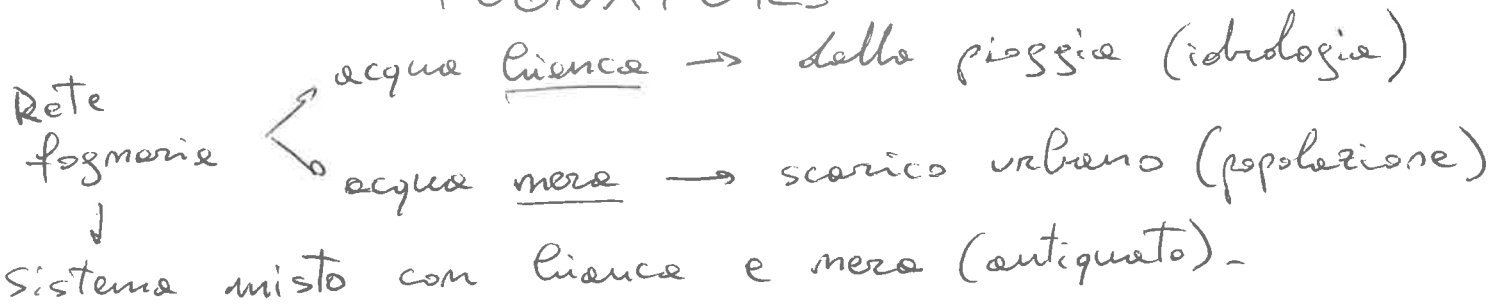 FOGNATURES
acqua bianca → dalla pioggia (idrologia)
Rete fognaria
acqua nera → scarico urbano (popolazione)
↓
Sistema misto con bianca e nera (antiquato).